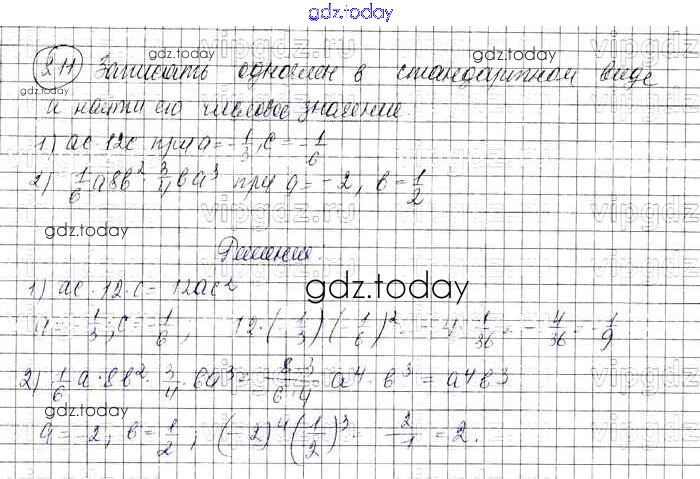 gdz.today
211 Записать одночлен в стандартном виде
и найти его числовое значение.
1) ac·12c при a = -1/3, c = -1/6
2) 1/6 a8b² · 3/4 ba³ при a = -2, b = 1/2
gdz.today
Решение
1) ac·12·c = 12ac²
gdz.today
a = -1/3; c = -1/6, 12·(-1/3)(-1/6)² = -4·1/36 = -4/36 = -1/9
2) 1/6 a·8b²· 3/4 ·ba³ = 8·3/6·4 a⁴·b³ = a⁴b³
gdz.today
a = -2; b = 1/2, (-2)⁴(1/2)³ = 2/1 = 2.
gdz.today